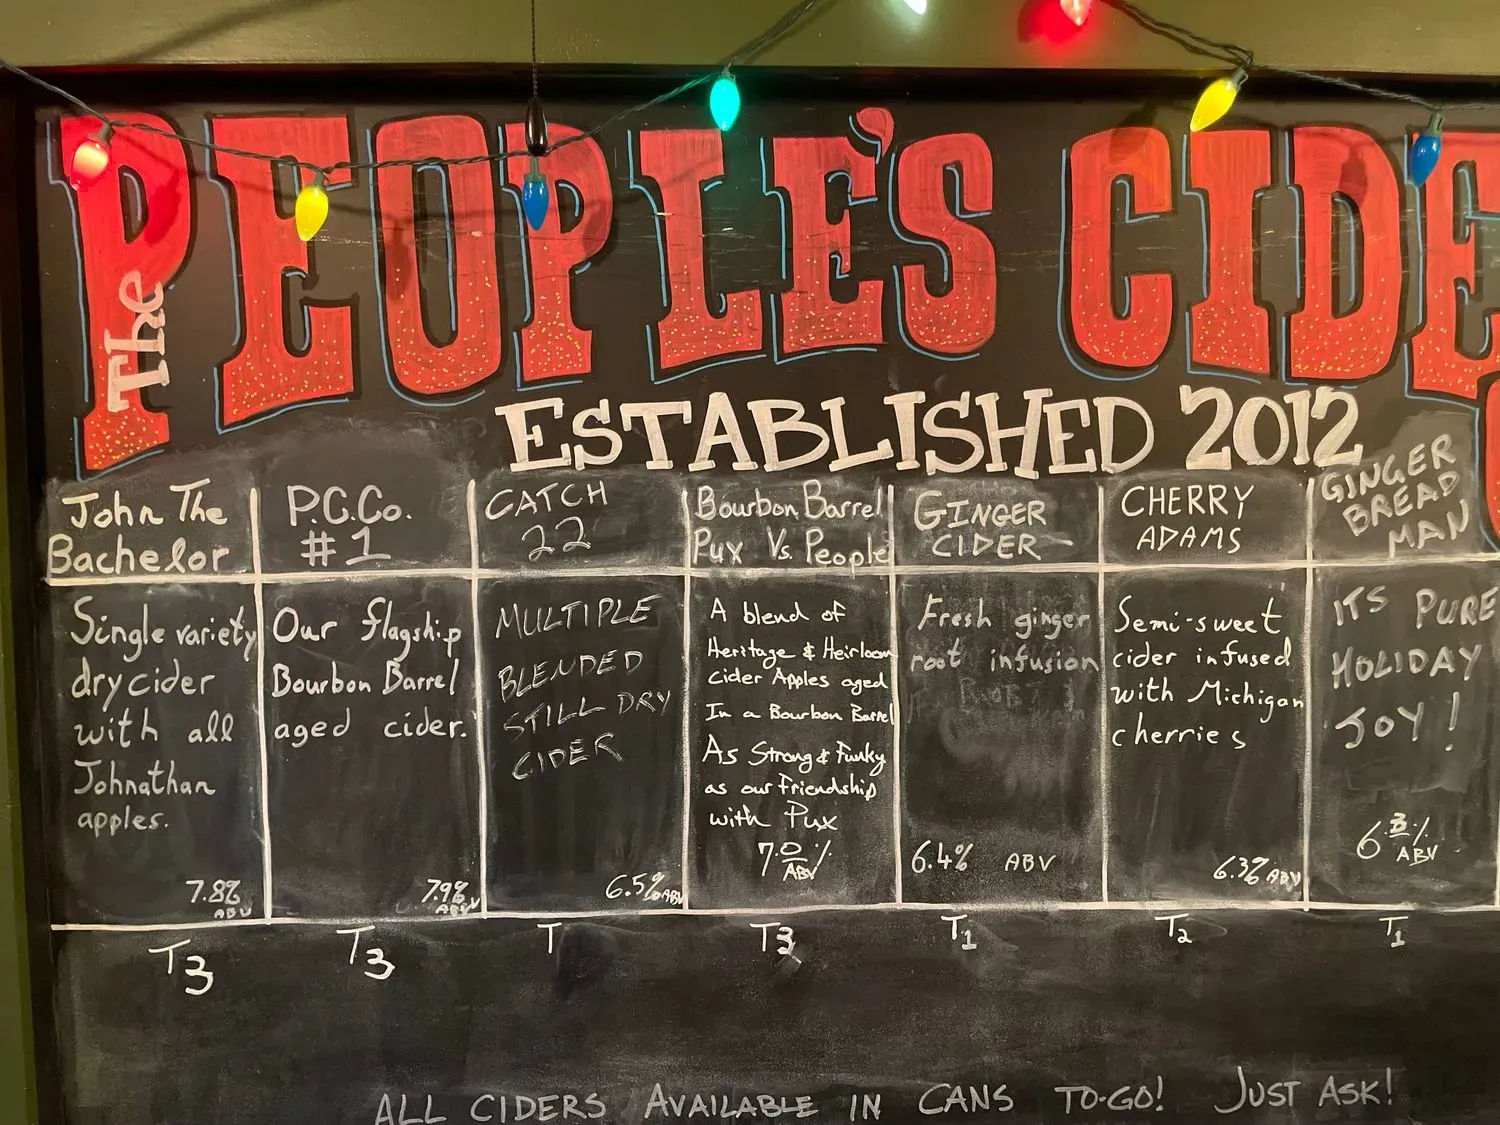 The PEOPLE'S CIDE
ESTABLISHED 2012
John The
Bachelor
Single variety
dry cider
with all
Johnathan
apples.
7.8%
ABV
T3
P.C.Co.
#1
Our flagship
Bourbon Barrel
aged cider.
7.9%
ABV
T3
CATCH
22
MULTIPLE
BLENDED
STILL DRY
CIDER
6.5% ABV
T
Bourbon Barrel
Pux Vs. People
A blend of
Heritage & Heirloom
Cider Apples aged
In a Bourbon Barrel
As Strong & Funky
as our friendship
with Pux
7.0%
ABV
T3
GINGER
CIDER
Fresh ginger
root infusion
6.4% ABV
T1
CHERRY
ADAMS
Semi-sweet
cider infused
with Michigan
cherries
6.3% ABV
T2
GINGER
BREAD
MAN
ITS PURE
HOLIDAY
JOY!
6.3%
ABV
T1
ALL CIDERS AVAILABLE IN CANS TO-GO! JUST ASK!